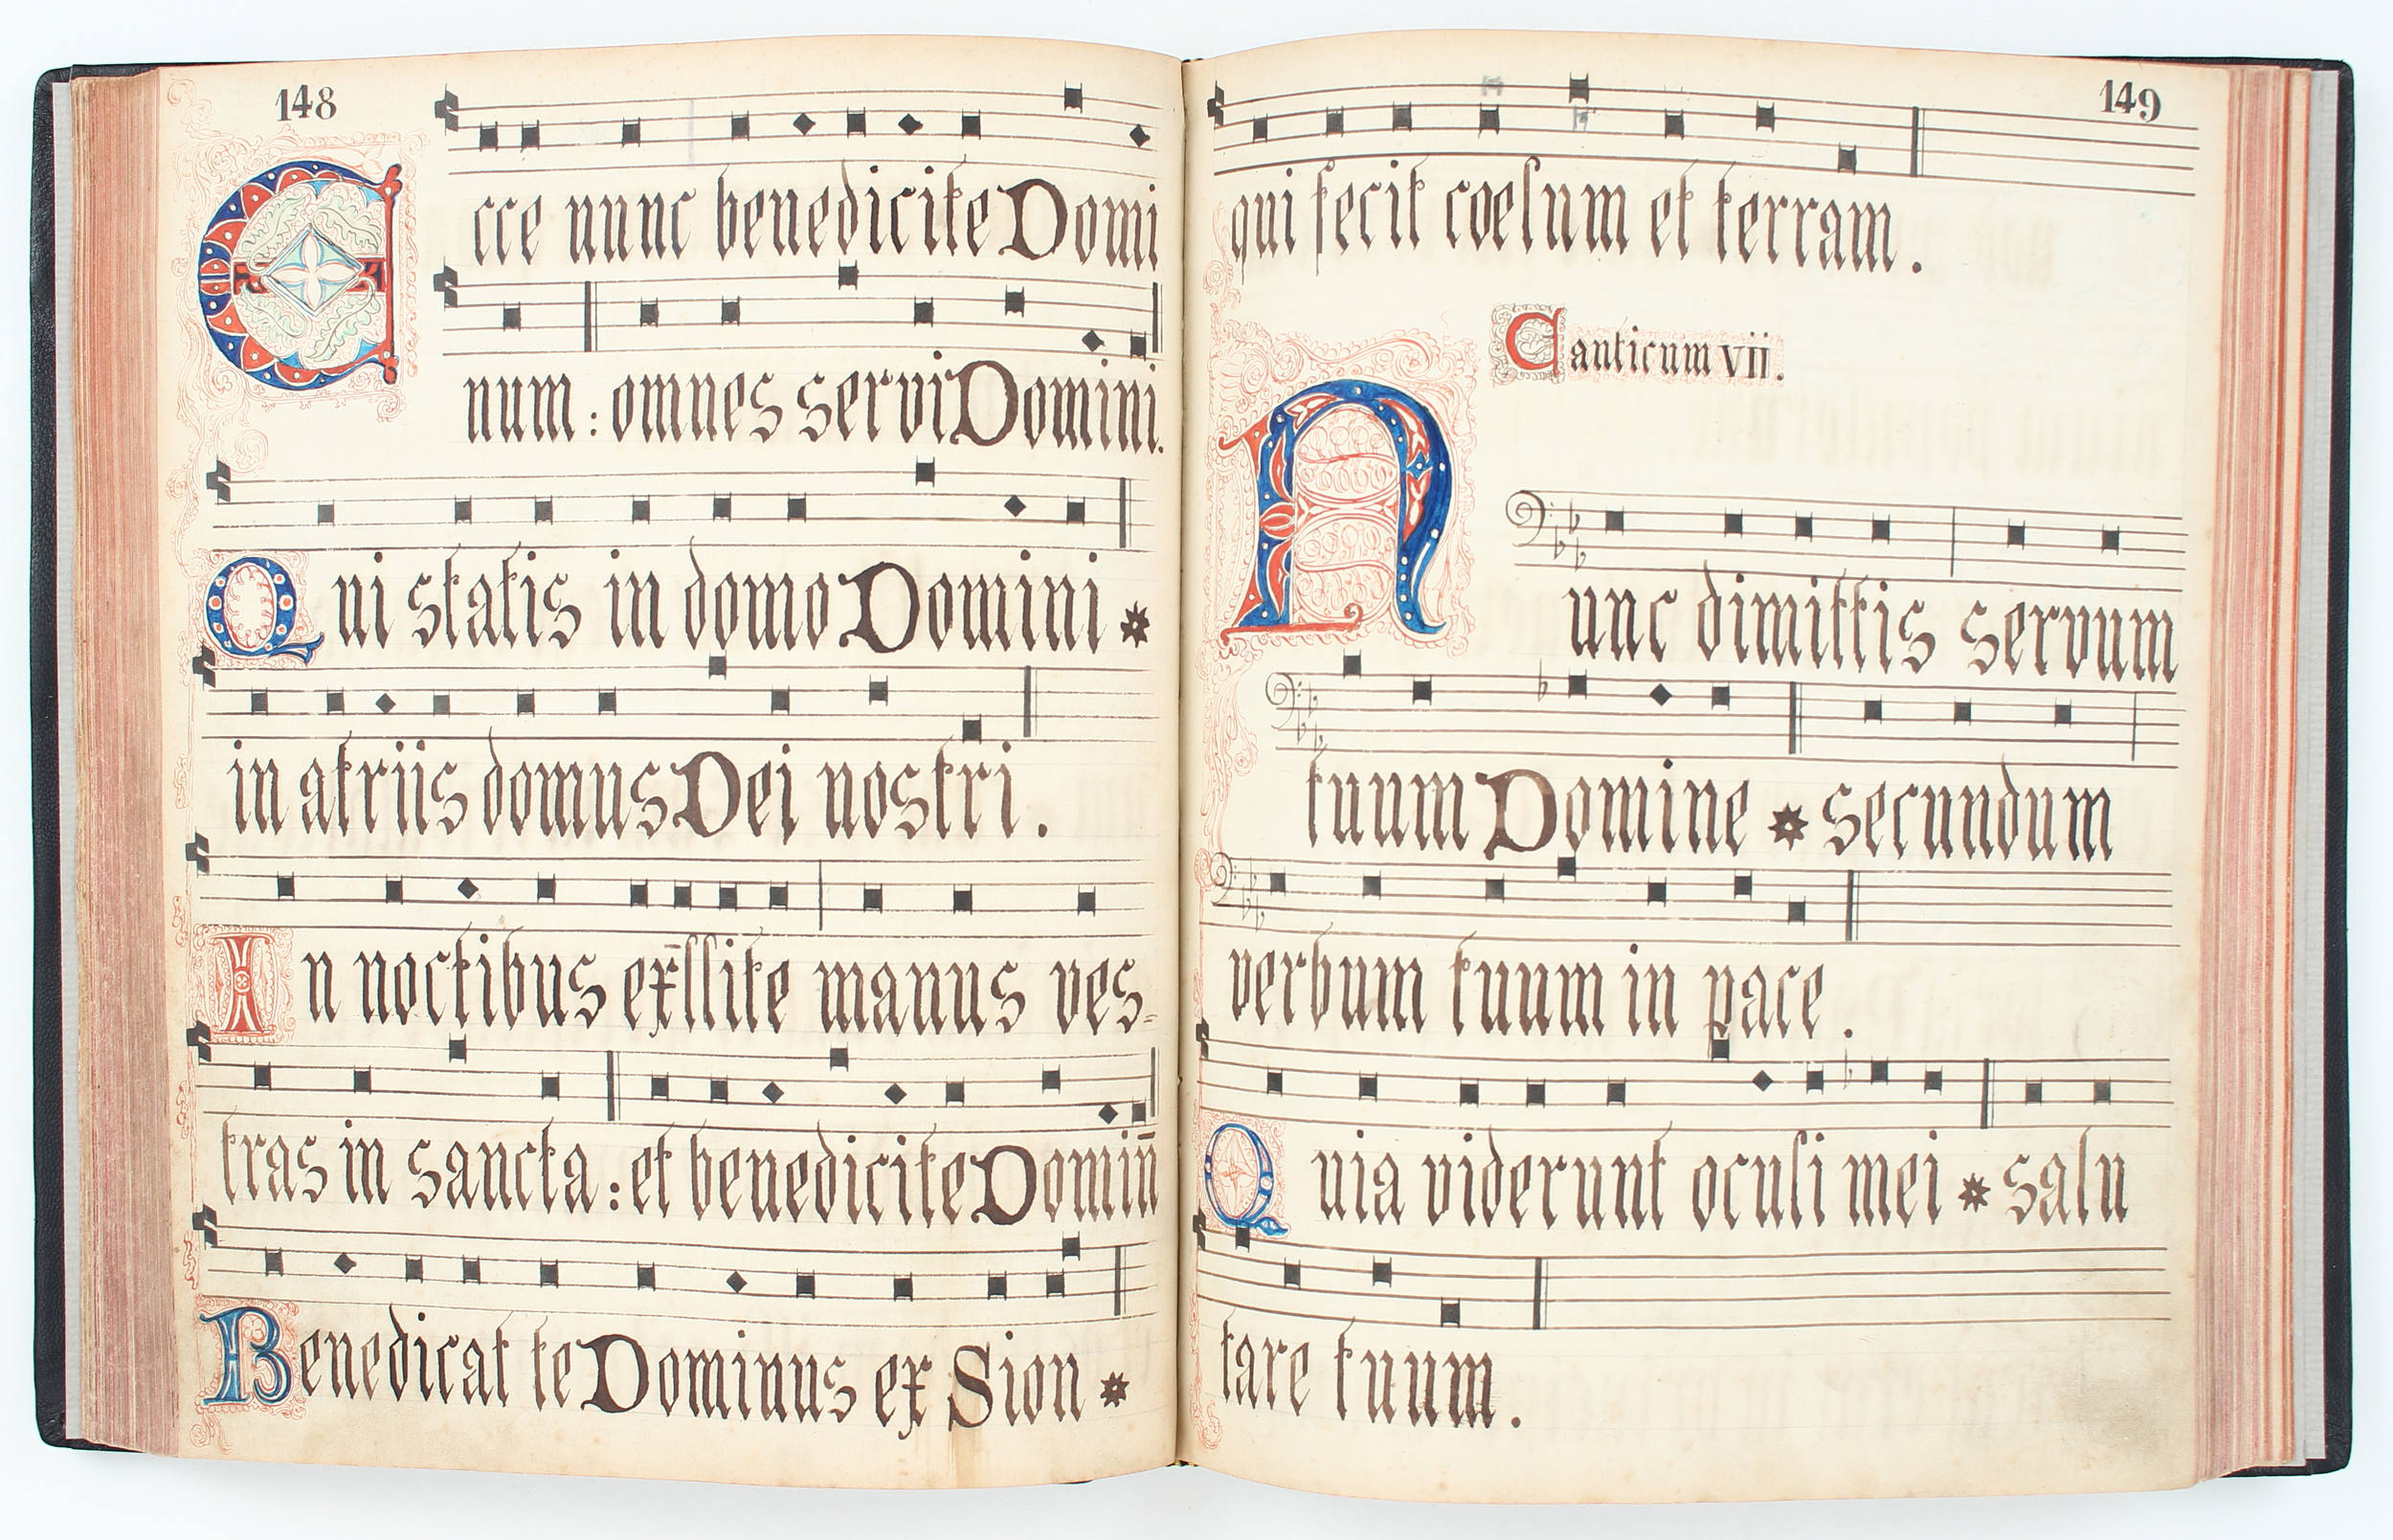 148
Ecce nunc benedicite Domi
num: omnes servi Domini.
Qui statis in domo Domini *
in atriis domus Dei nostri.
In noctibus ex̄llite manus ves-
tras in sancta: et benedicite Domin̄
Benedicat te Dominus ex Sion *
149
qui fecit coelum et terram.
Canticum vii.
Nunc dimittis servum
tuum Domine * secundum
verbum tuum in pace.
Quia viderunt oculi mei * salu
tare tuum.